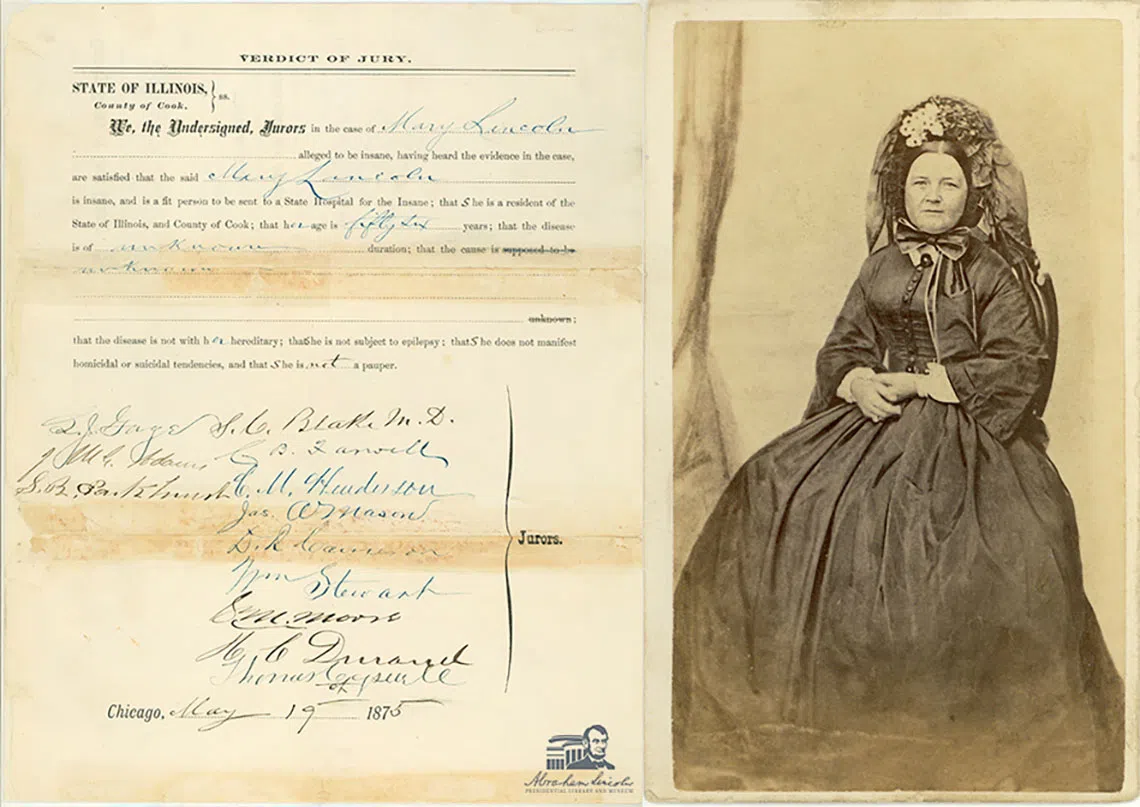 VERDICT OF JURY.
STATE OF ILLINOIS, } ss.
County of Cook.
We, the Undersigned, Jurors in the case of Mary Lincoln
alleged to be insane, having heard the evidence in the case,
are satisfied that the said Mary Lincoln
is insane, and is a fit person to be sent to a State Hospital for the Insane; that She is a resident of the
State of Illinois, and County of Cook; that her age is fifty six years; that the disease
is of unknown duration; that the cause is supposed to be
unknown
unknown;
that the disease is not with her hereditary; that She is not subject to epilepsy; that She does not manifest
homicidal or suicidal tendencies, and that She is not a pauper.
L. J. Gage S. C. Blake M. D.
J. McG. Adams C. B. Farwell
S. B. Parkhurst C. M. Henderson
Jas. A Mason
D. R. Cameron
Wm Stewart
S. M. Moore
H. C. Durand
Thomas Cogswell
Jurors.
Chicago, May 19th 1875
Abraham Lincoln
PRESIDENTIAL LIBRARY AND MUSEUM